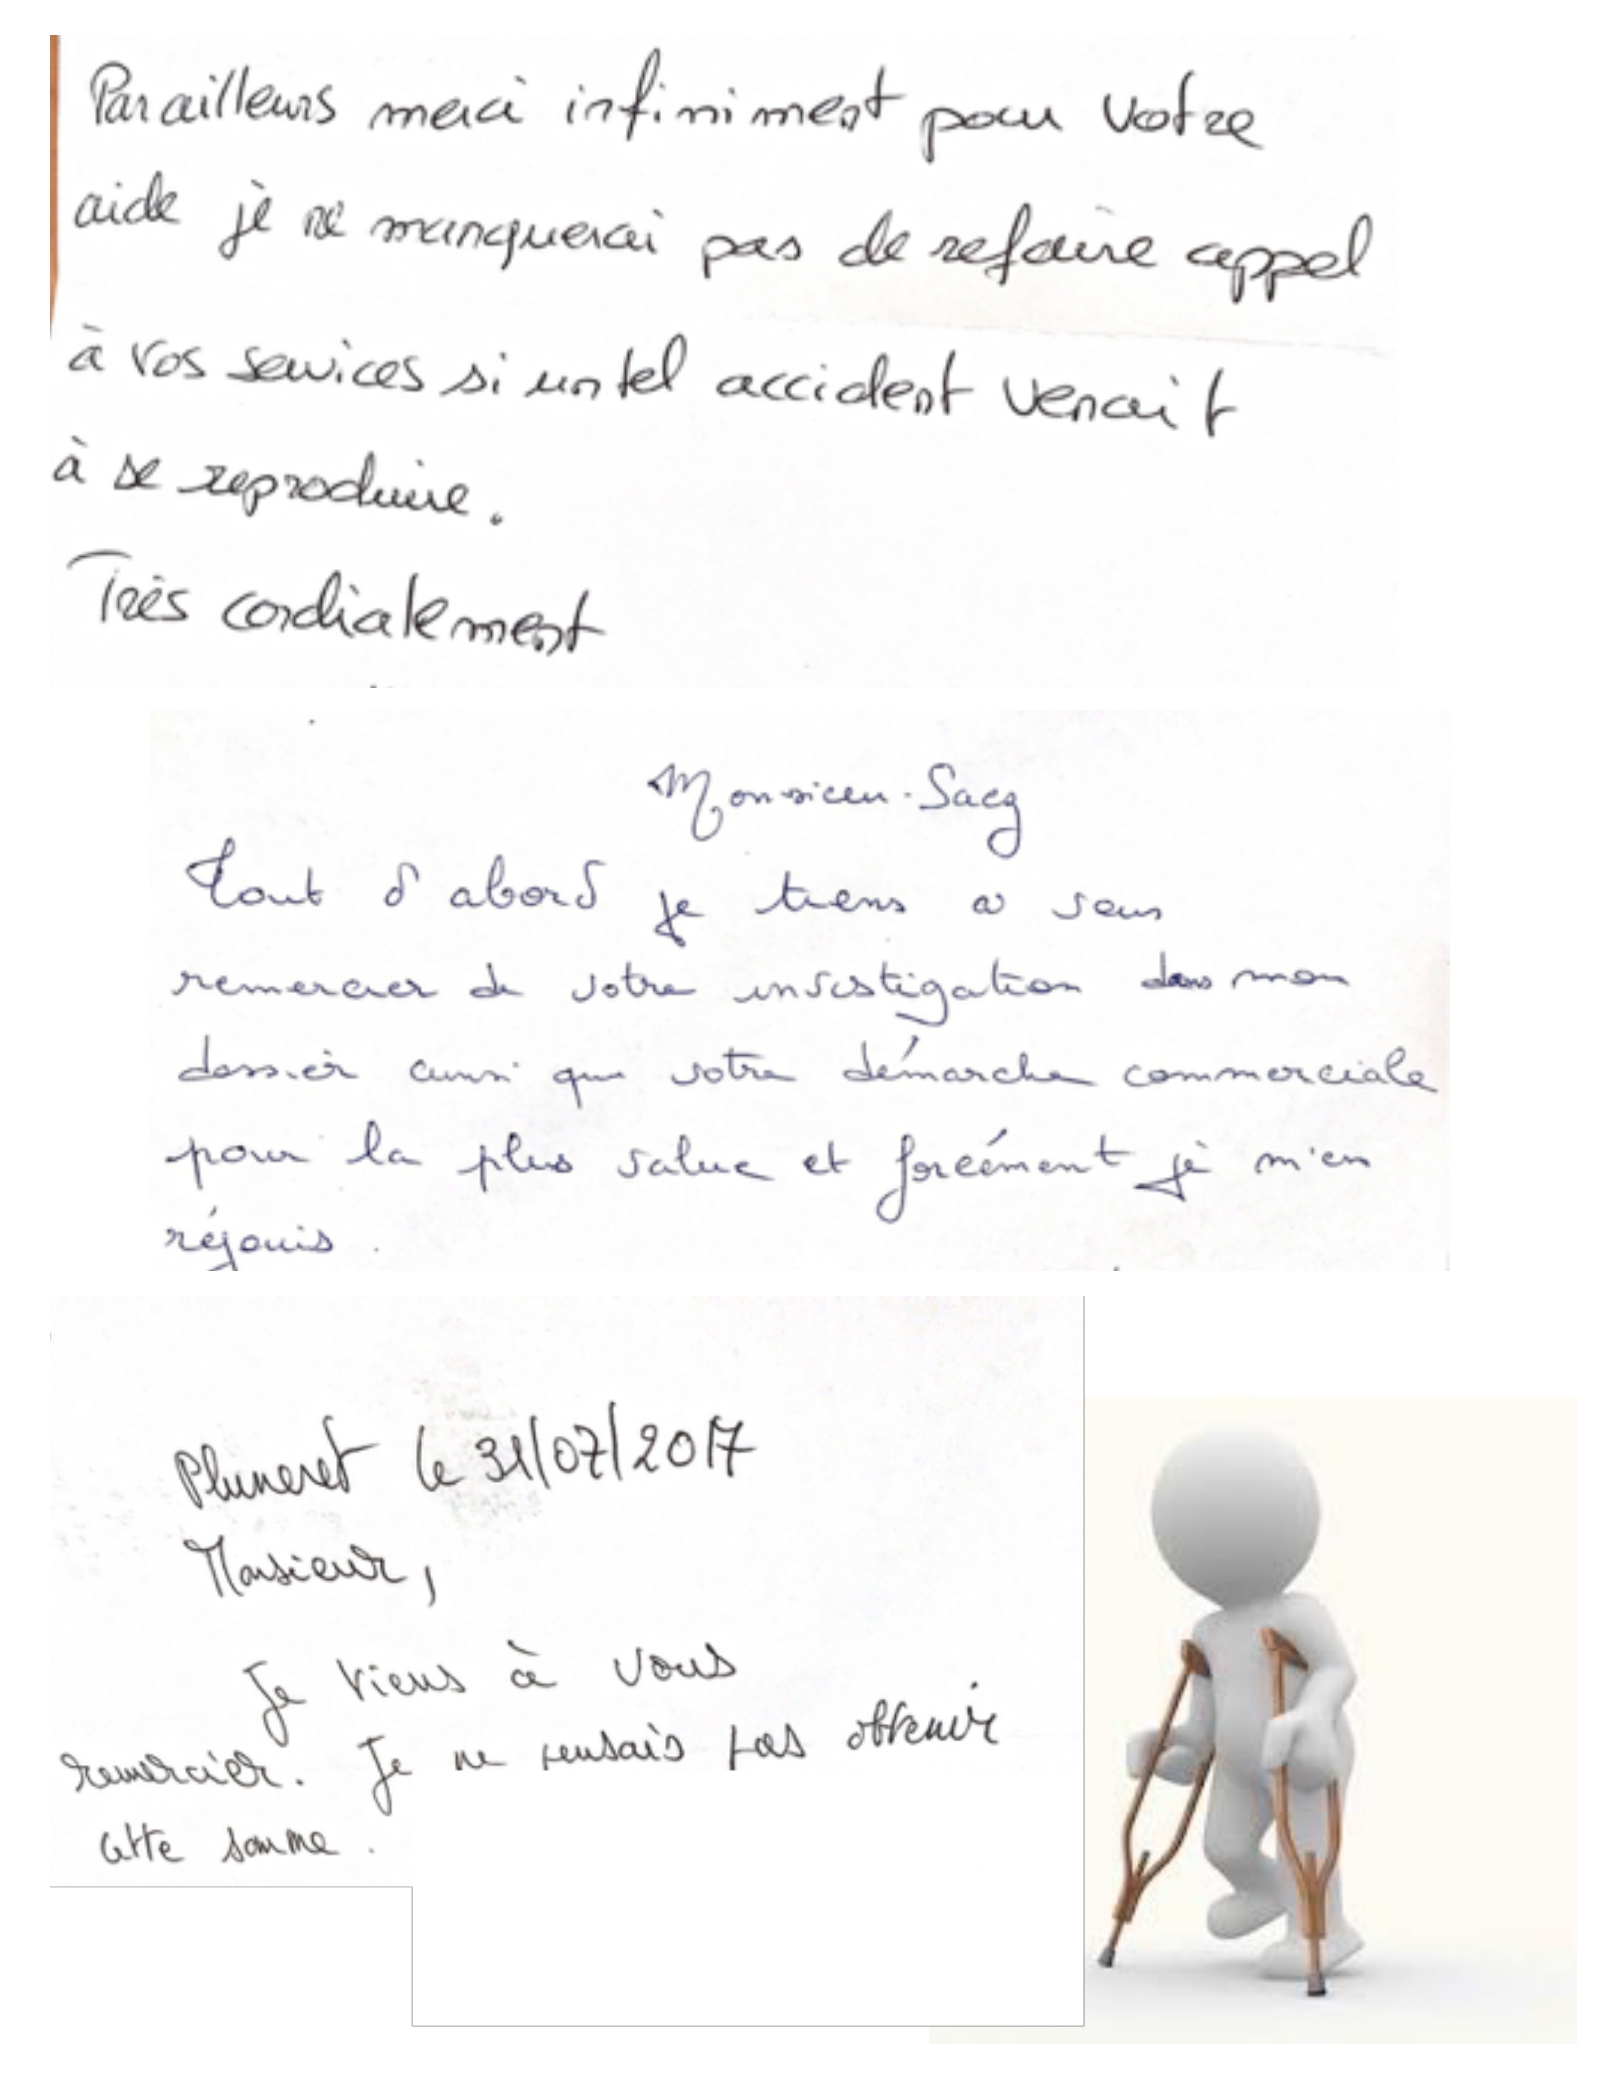 Par ailleurs merci infiniment pour votre
aide je ne manquerai pas de refaire appel
à vos services si un tel accident venait
à se reproduire.
Très cordialement
Monsieur Sacq
Tout d'abord je tiens a vous
remercier de votre investigation dans mon
dossier ainsi que votre démarche commerciale
pour la plus value et forcément je m'en
réjouis.
Pluneret le 31/07/2017
Monsieur,
Je viens à vous
remercier. Je ne pensais pas obtenir
cette somme.